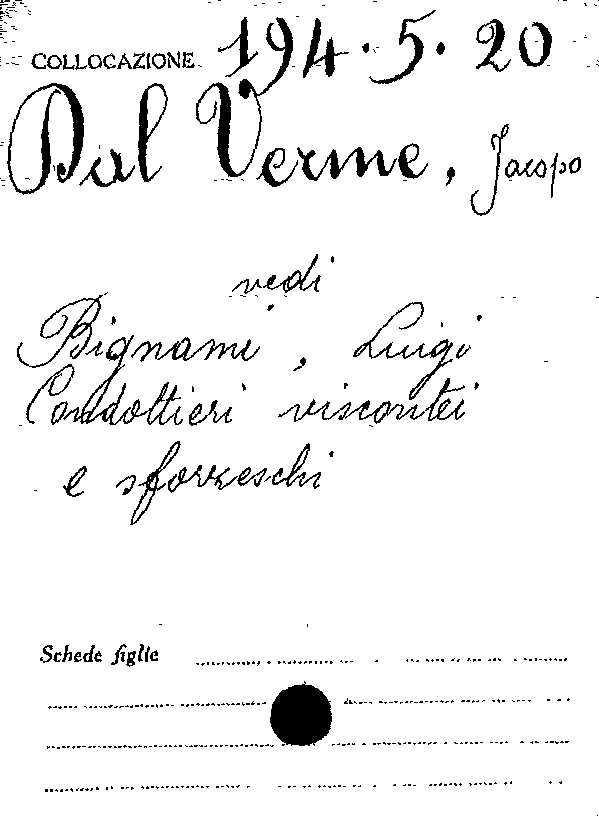 COLLOCAZIONE 194.5.20
Dal Verme, Jacopo
vedi
Bignami, Luigi
Condottieri viscontei
e sforzeschi
Schede figlie